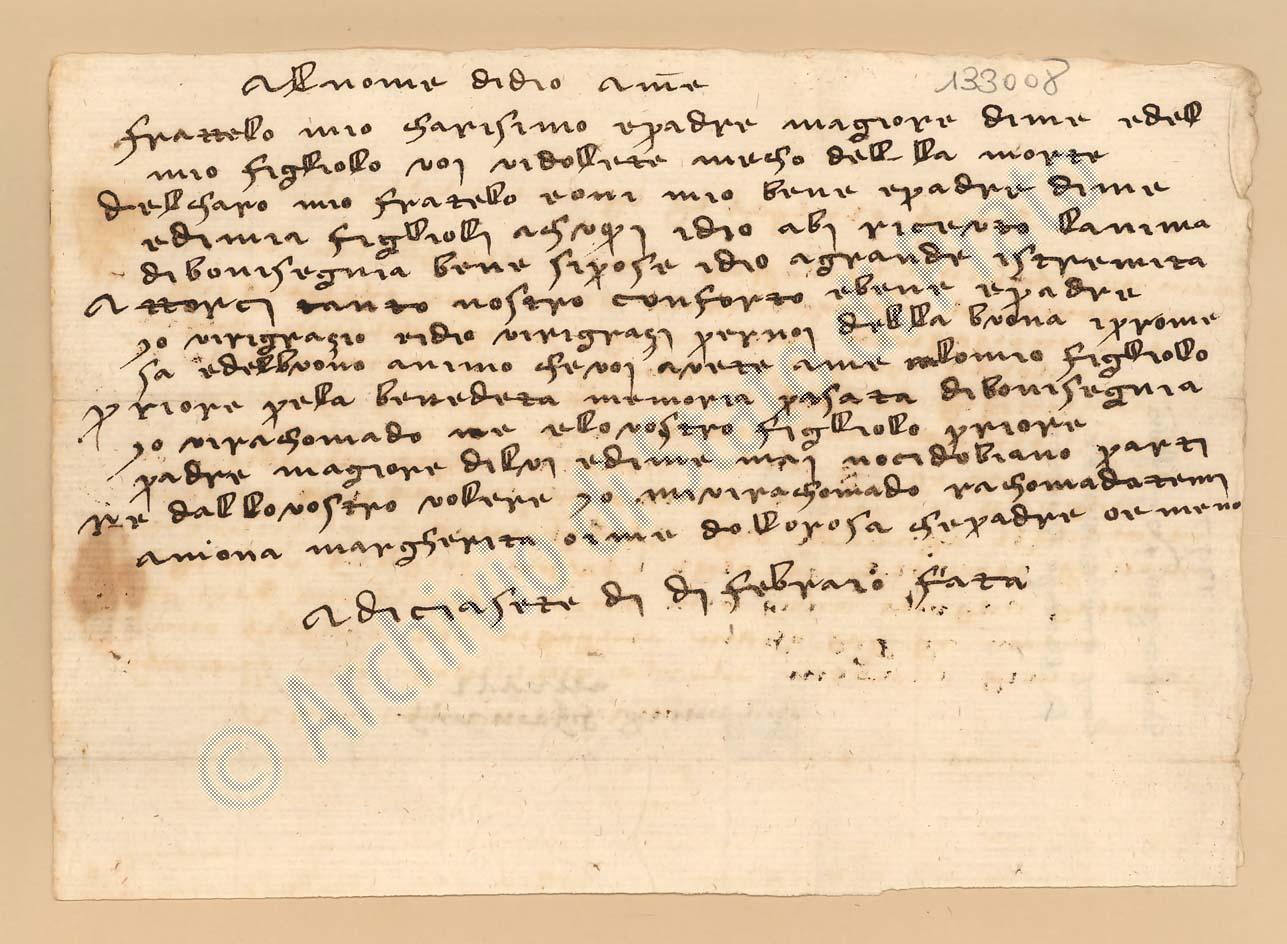 al nome didio ame
133008
frattelo mio charisimo epadre magiore dime edel
mio figliolo voi vidolete mecho della morte
delcharo mio fratelo eoni mio bene epadre dime
edimia figlioli idio abi ricevto lanima
dibonisegnia bene sipose idio agrande istremita
attorci tanto nostro conforto ebene epadre
io virigrazio eidio virigrazi pernoi della buona iprome
sa edelbuono animo chevoi avete ame lomio figliolo
priore pela benedeta memoria pasata dibonisegnia
io virachomado me elovostro figliolo priore
padre magiore dilui edime mai nocidobiano parti
re dallovostro volere io mivirachomado rachomadatemi
amona margherita oime dollorosa chepadre oemeno
adiciasete di di febraio fata
© Archivio di Stato di Prato